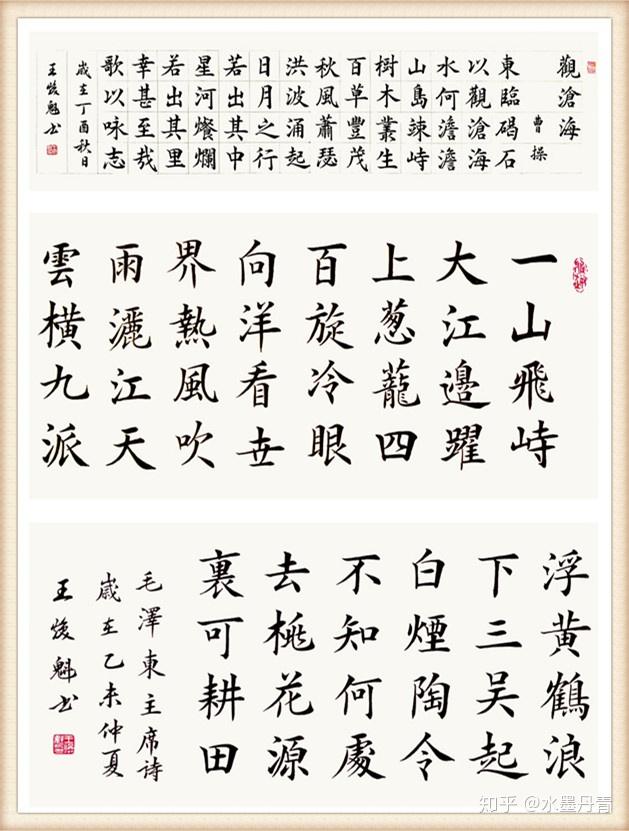 觀滄海
曹操
東臨碣石
以觀滄海
水何澹澹
山島竦峙
樹木叢生
百草豐茂
秋風蕭瑟
洪波涌起
日月之行
若出其中
星河燦爛
若出其里
幸甚至哉
歌以咏志
歲在丁酉秋日
王焌魁书
一山飛峙
大江邊躍
上葱蘢四
百旋冷眼
向洋看世
界熱風吹
雨灑江天
雲橫九派
浮黃鶴浪
下三吳起
白煙陶令
不知何處
去桃花源
裏可耕田
毛澤東主席詩
歲在乙未仲夏
王焌魁书
知乎 @水墨丹青